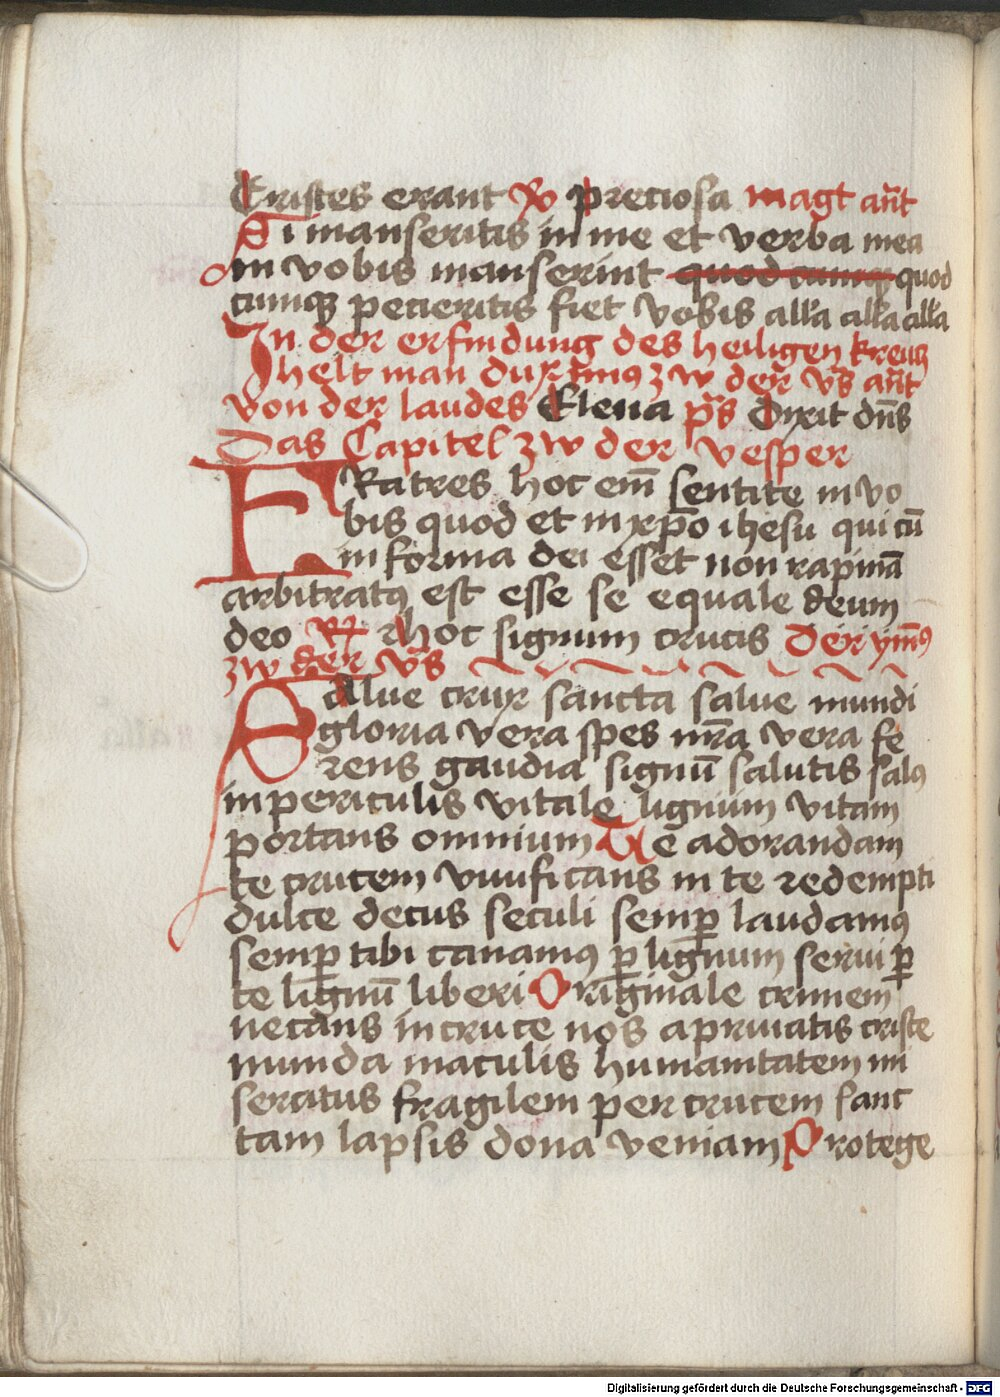 Tristes erant v̄ preciosa magt an̄t
Si manseritis in me et verba mea
in vobis manserint quod cumqꝫ quod
cumqꝫ pecieritis fiet vobis alla alla alla
In der erfindung des heiligen kreutz
helt man zw der vs̄ an̄t
von der laudes Elena ps̄ Dixit dn̄s
Das Capitel zw der vesper
FRatres hoc em̄ sentite in vo
bis quod et in xp̄o ihesu qui cū
in forma dei esset non rapinā
arbitratꝰ est esse se equale deum
deo hoc signum crucis Der ym̄ꝰ
zw der vs̄
Salue crux sancta salue mundi
gloria vera spes nr̄a vera fe
rens gaudia signū salutis salꝰ
in periculis vitale lignum vitam
portans omnium Te adorandam
te crucem viuificans in te redempti
dulce decus seculi semꝑ laudamꝰ
semꝑ tibi canamꝰ ꝑ lignum serui ꝑ
te lignū liberi Originale crimem
necans in cruce nos a priuatis criste
munda maculis humanitatem mi
seratus fragilem per crucem sanc
tam lapsis dona veniam Protege
Digitalisierung gefördert durch die Deutsche Forschungsgemeinschaft - DFG